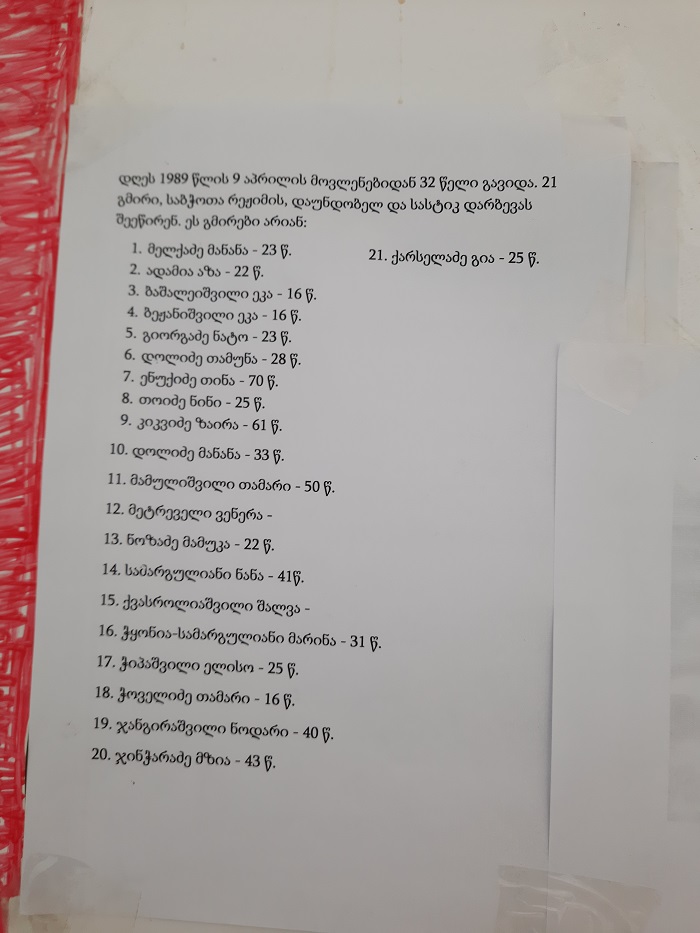 დღეს 1989 წლის 9 აპრილის მოვლენებიდან 32 წელი გავიდა. 21
გმირი, საბჭოთა რეჟიმის, დაუნდობელ და სასტიკ დარბევას
შეეწირენ. ეს გმირები არიან:
1. მელქაძე მანანა - 23 წ.
2. ადამია აზა - 22 წ.
3. ბაშალეიშვილი ეკა - 16 წ.
4. ბეჟანიშვილი ეკა - 16 წ.
5. გიორგაძე ნატო - 23 წ.
6. დოლიძე თამუნა - 28 წ.
7. ენუქიძე თინა - 70 წ.
8. თოიძე ნინი - 25 წ.
9. კიკვიძე ზაირა - 61 წ.
10. დოლიძე მანანა - 33 წ.
11. მამულიშვილი თამარი - 50 წ.
12. მეტრეველი ვენერა -
13. ნოზაძე მამუკა - 22 წ.
14. სამარგულიანი ნანა - 41წ.
15. ქვასროლიაშვილი შალვა -
16. ჭყონია-სამარგულიანი მარინა - 31 წ.
17. ჭიპაშვილი ელისო - 25 წ.
18. ჭოველიძე თამარი - 16 წ.
19. ჯანგირაშვილი ნოდარი - 40 წ.
20. ჯინჭარაძე მზია - 43 წ.
21. ქარსელაძე გია - 25 წ.